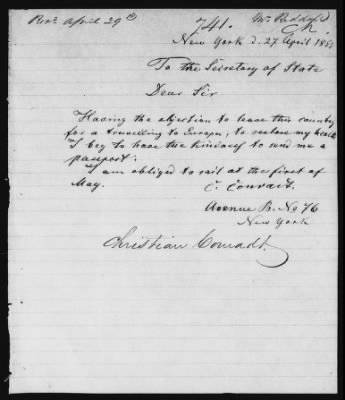 Rec. April 29th
741.
Mr. Reddall
New York d. 27 April 185
To the Secretary of State
Dear Sir
Having the objection to leave this country
for a travelling to Europe, to restore my health
I beg to have the kindness to send me a
passport.
I am obliged to sail at the first of
May.
C. Conradt.
Avenue B. No 76
New York
Christian Conradt.